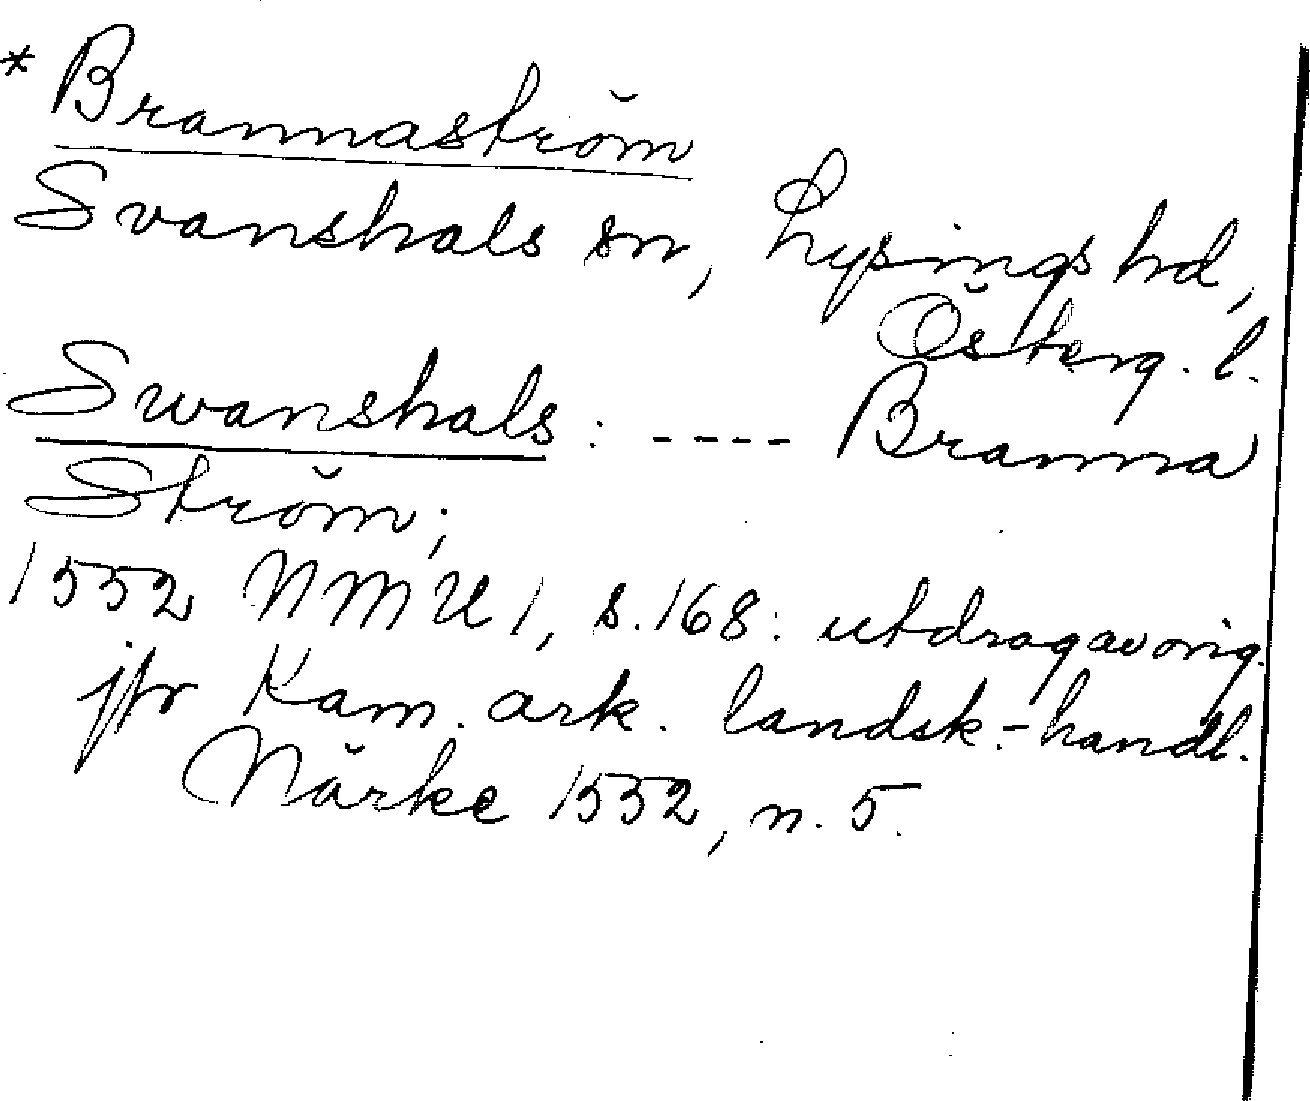 * Brannaström
Svanshals sn, Lysings hd,
Österg. l.
Swanshals: ---- Branna
Ström;
1552 NMU 1, s. 168: utdrag av orig.
jfr Kam. ark. landsk.-handl.
Närke 1552, n. 5.